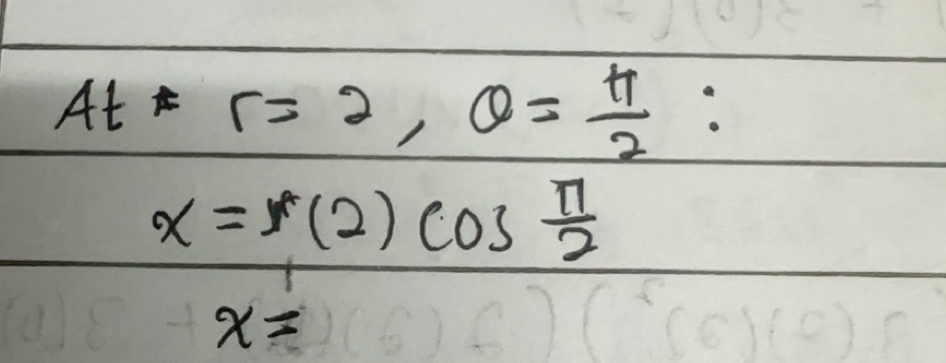 At r = 2, θ = π/2 :
x = (2) cos π/2
x =